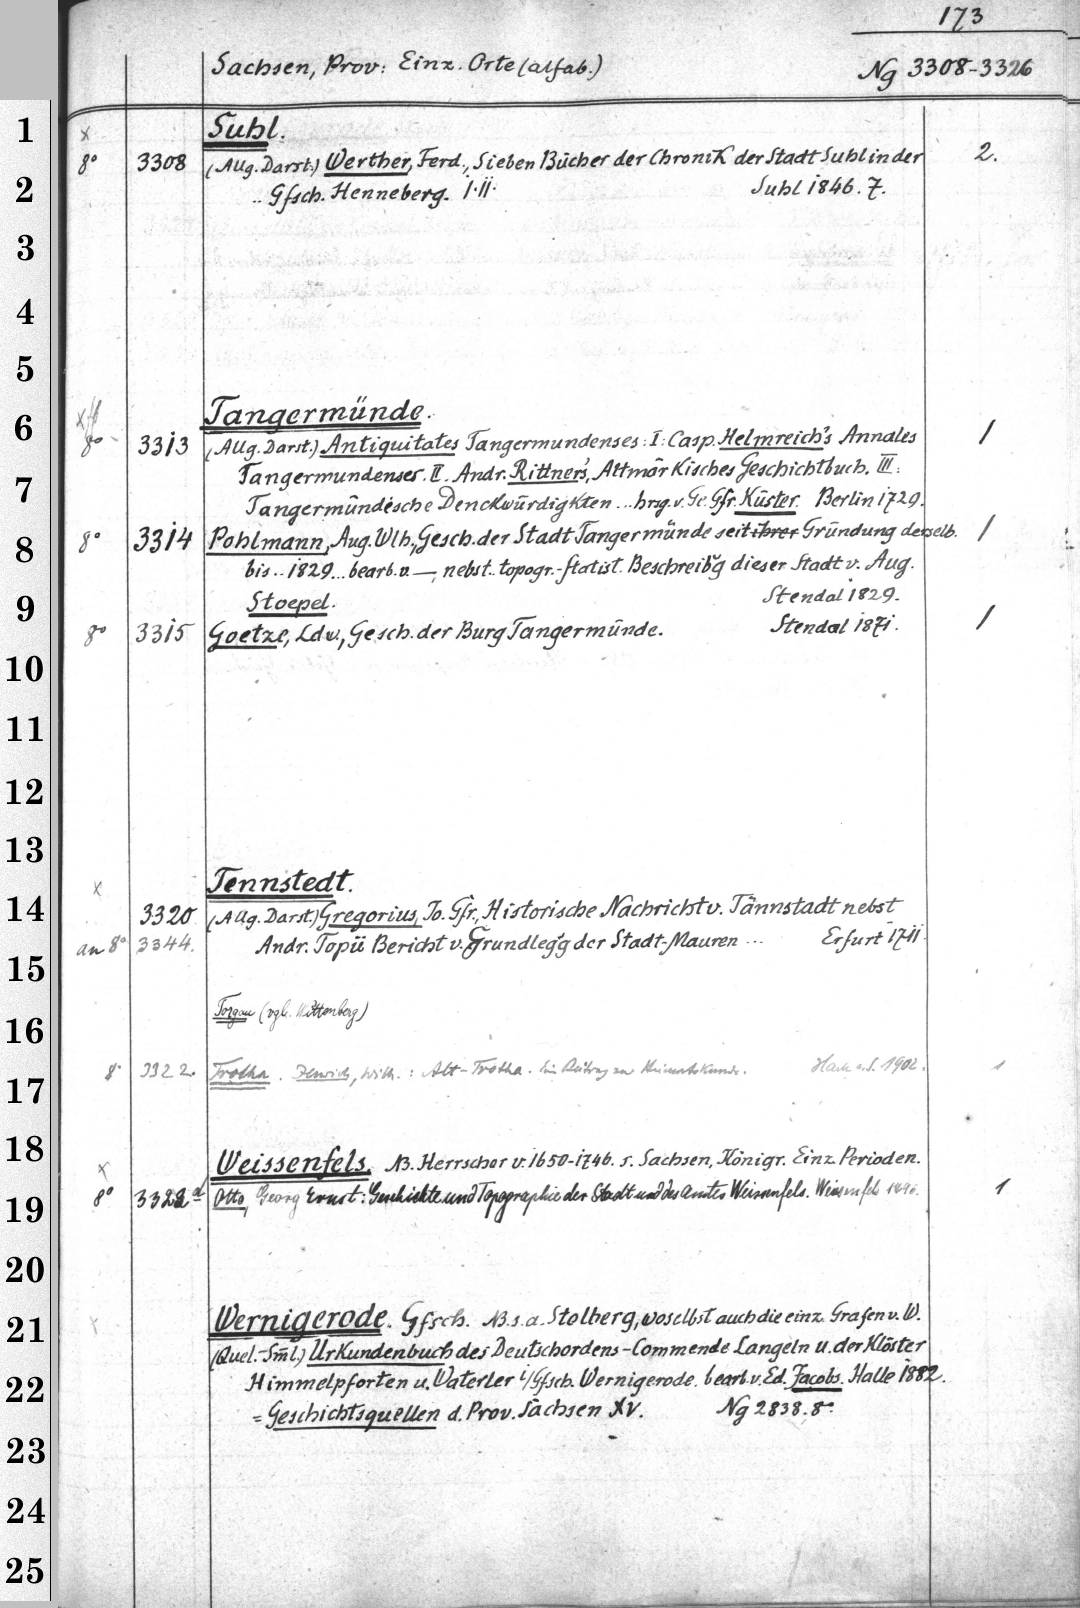 173
Sachsen, Prov: Einz. Orte (alfab.) Ng 3308-3326
1 x Suhl.
8° 3308 (Allg. Darst.) Werther, Ferd., Sieben Bücher der Chronik der Stadt Suhl in der 2.
2 .. Gfsch. Henneberg. I.II. Suhl 1846. 7.
3
4
5
6 x Tangermünde.
8° 3313 (Allg. Darst.) Antiquitates Tangermundenses: I: Casp. Helmreich's Annales 1
Tangermundenses. II. Andr. Rittner's, Altmärkisches Geschichtbuch. III:
7 Tangermündesche Denckwürdigkten ... hrsg. v. Ge. Gfr. Küster. Berlin 1729.
8 8° 3314 Pohlmann, Aug. Wlh., Gesch. der Stadt Tangermünde seit ihrer Gründung derselb. 1
bis .. 1829 .. bearb. v. —, nebst .. topogr.-statist. Beschreibg dieser Stadt v. Aug.
9 Stoepel. Stendal 1829.
8° 3315 Goetze, Ldw., Gesch. der Burg Tangermünde. Stendal 1871. 1
10
11
12
13
x Tennstedt.
14 3320 (Allg. Darst.) Gregorius, Jo. Gfr., Historische Nachricht v. Tännstadt nebst
an 8° 3344. Andr. Topii Bericht v. Grundleg'g der Stadt-Mauren ... Erfurt 1711.
15
16 Torgau (vgl. Wittenberg)
17 8° 3322. Trotha. , Wilh.: Alt-Trotha. Ein Beitrag zur Heimatskunde. Halle a.S. 1902. 1
18 x Weissenfels. NB. Herrscher v. 1650-1746. s. Sachsen, Königr. Einz. Perioden.
19 8° 3323 Otto, Georg Ernst: Geschichte und Topographie der Stadt und des Amtes Weissenfels. Weissenfels 1
20
21 x Wernigerode. Gfsch. NB. s. a. Stolberg, woselbst auch die einz. Grafen v. W.
(Quel.-Sml.) Urkundenbuch des Deutschordens-Commende Langeln u. der Klöster
22 Himmelpforten u. Waterler i/Gfsch. Wernigerode. bearb. v. Ed. Jacobs. Halle 1882.
= Geschichtsquellen d. Prov. Sachsen XV. Ng 2838. 8°
23
24
25